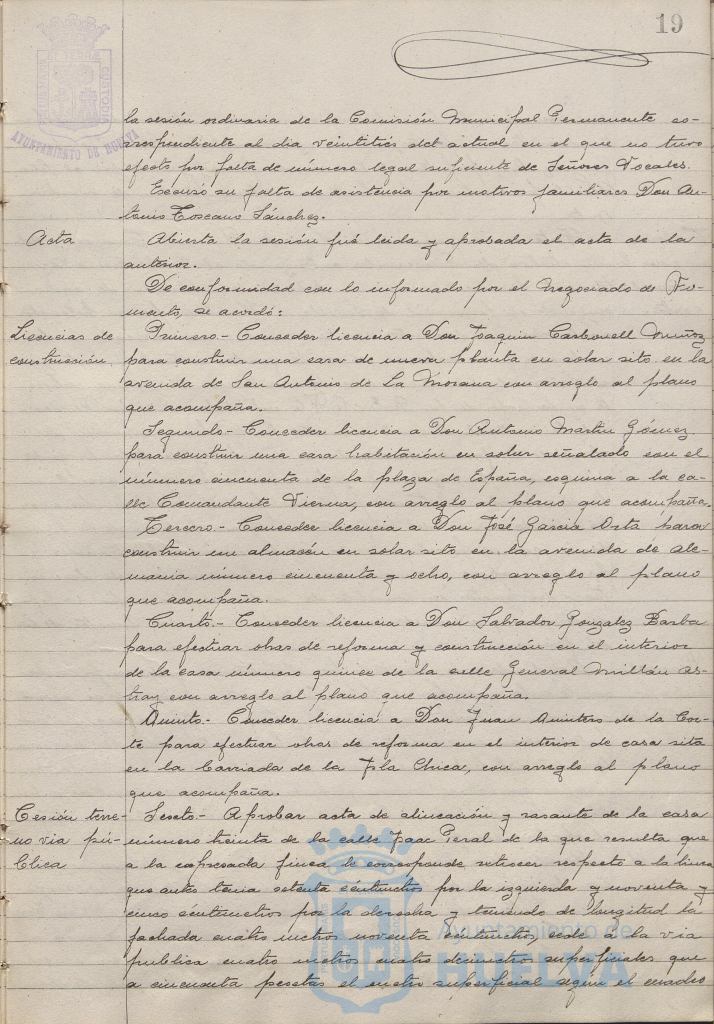 19
AYUNTAMIENTO DE HUELVA
la sesión ordinaria de la Comisión Municipal Permanente co-
rrespondiente al dia veintitrés del actual en el que no tuvo
efecto por falta de número legal suficiente de Señores Vocales.
Excusó su falta de asistencia por motivos familiares Don An-
tonio Toscano Sánchez.
Acta
Abierta la sesión fué leida y aprobada el acta de la
anterior.
De conformidad con lo informado por el Negociado de Fo-
mento, se acordó:
Licencias de
construcción
Primero.- Conceder licencia a Don Joaquin Carbonell Muñoz
para construir una casa de nueva planta en solar sito en la
avenida de San Antonio de La Morana con arreglo al plano
que acompaña.
Segundo.- Conceder licencia a Don Antonio Martin Gómez
para construir una casa habitación en solar señalado con el
número cincuenta de la plaza de España, esquina a la ca-
lle Comandante Vierna, con arreglo al plano que acompaña.
Tercero.- Conceder licencia a Don José Garcia Orta para
construir un almacén en solar sito en la avenida de Ale-
mania número cincuenta y ocho, con arreglo al plano
que acompaña.
Cuarto.- Conceder licencia a Don Salvador Gonzalez Barba
para efectuar obras de reforma y construcción en el interior
de la casa número quince de la calle General Millán As-
tray con arreglo al plano que acompaña.
Quinto.- Conceder licencia a Don Juan Quintero de la Cor-
te para efectuar obras de reforma en el interior de casa sita
en la barriada de la Isla Chica, con arreglo al plano
que acompaña.
Cesión terre-
no via pú-
blica
Sexto.- Aprobar acta de alineación y rasante de la casa
número treinta de la calle Isaac Peral de la que resulta que
a la expresada finca le corresponde retrocer respecto a la linea
que antes tenia setenta centimetros por la izquierda y noventa y
cinco centimetros por la derecha y teniendo de longitud la
fachada cuatro metros noventa centimetros, cede a la via
publica cuatro metros cuatro decimetros superficiales que
a cincuenta pesetas el metro superficial según el cuadro
Ayuntamiento de
HUELVA